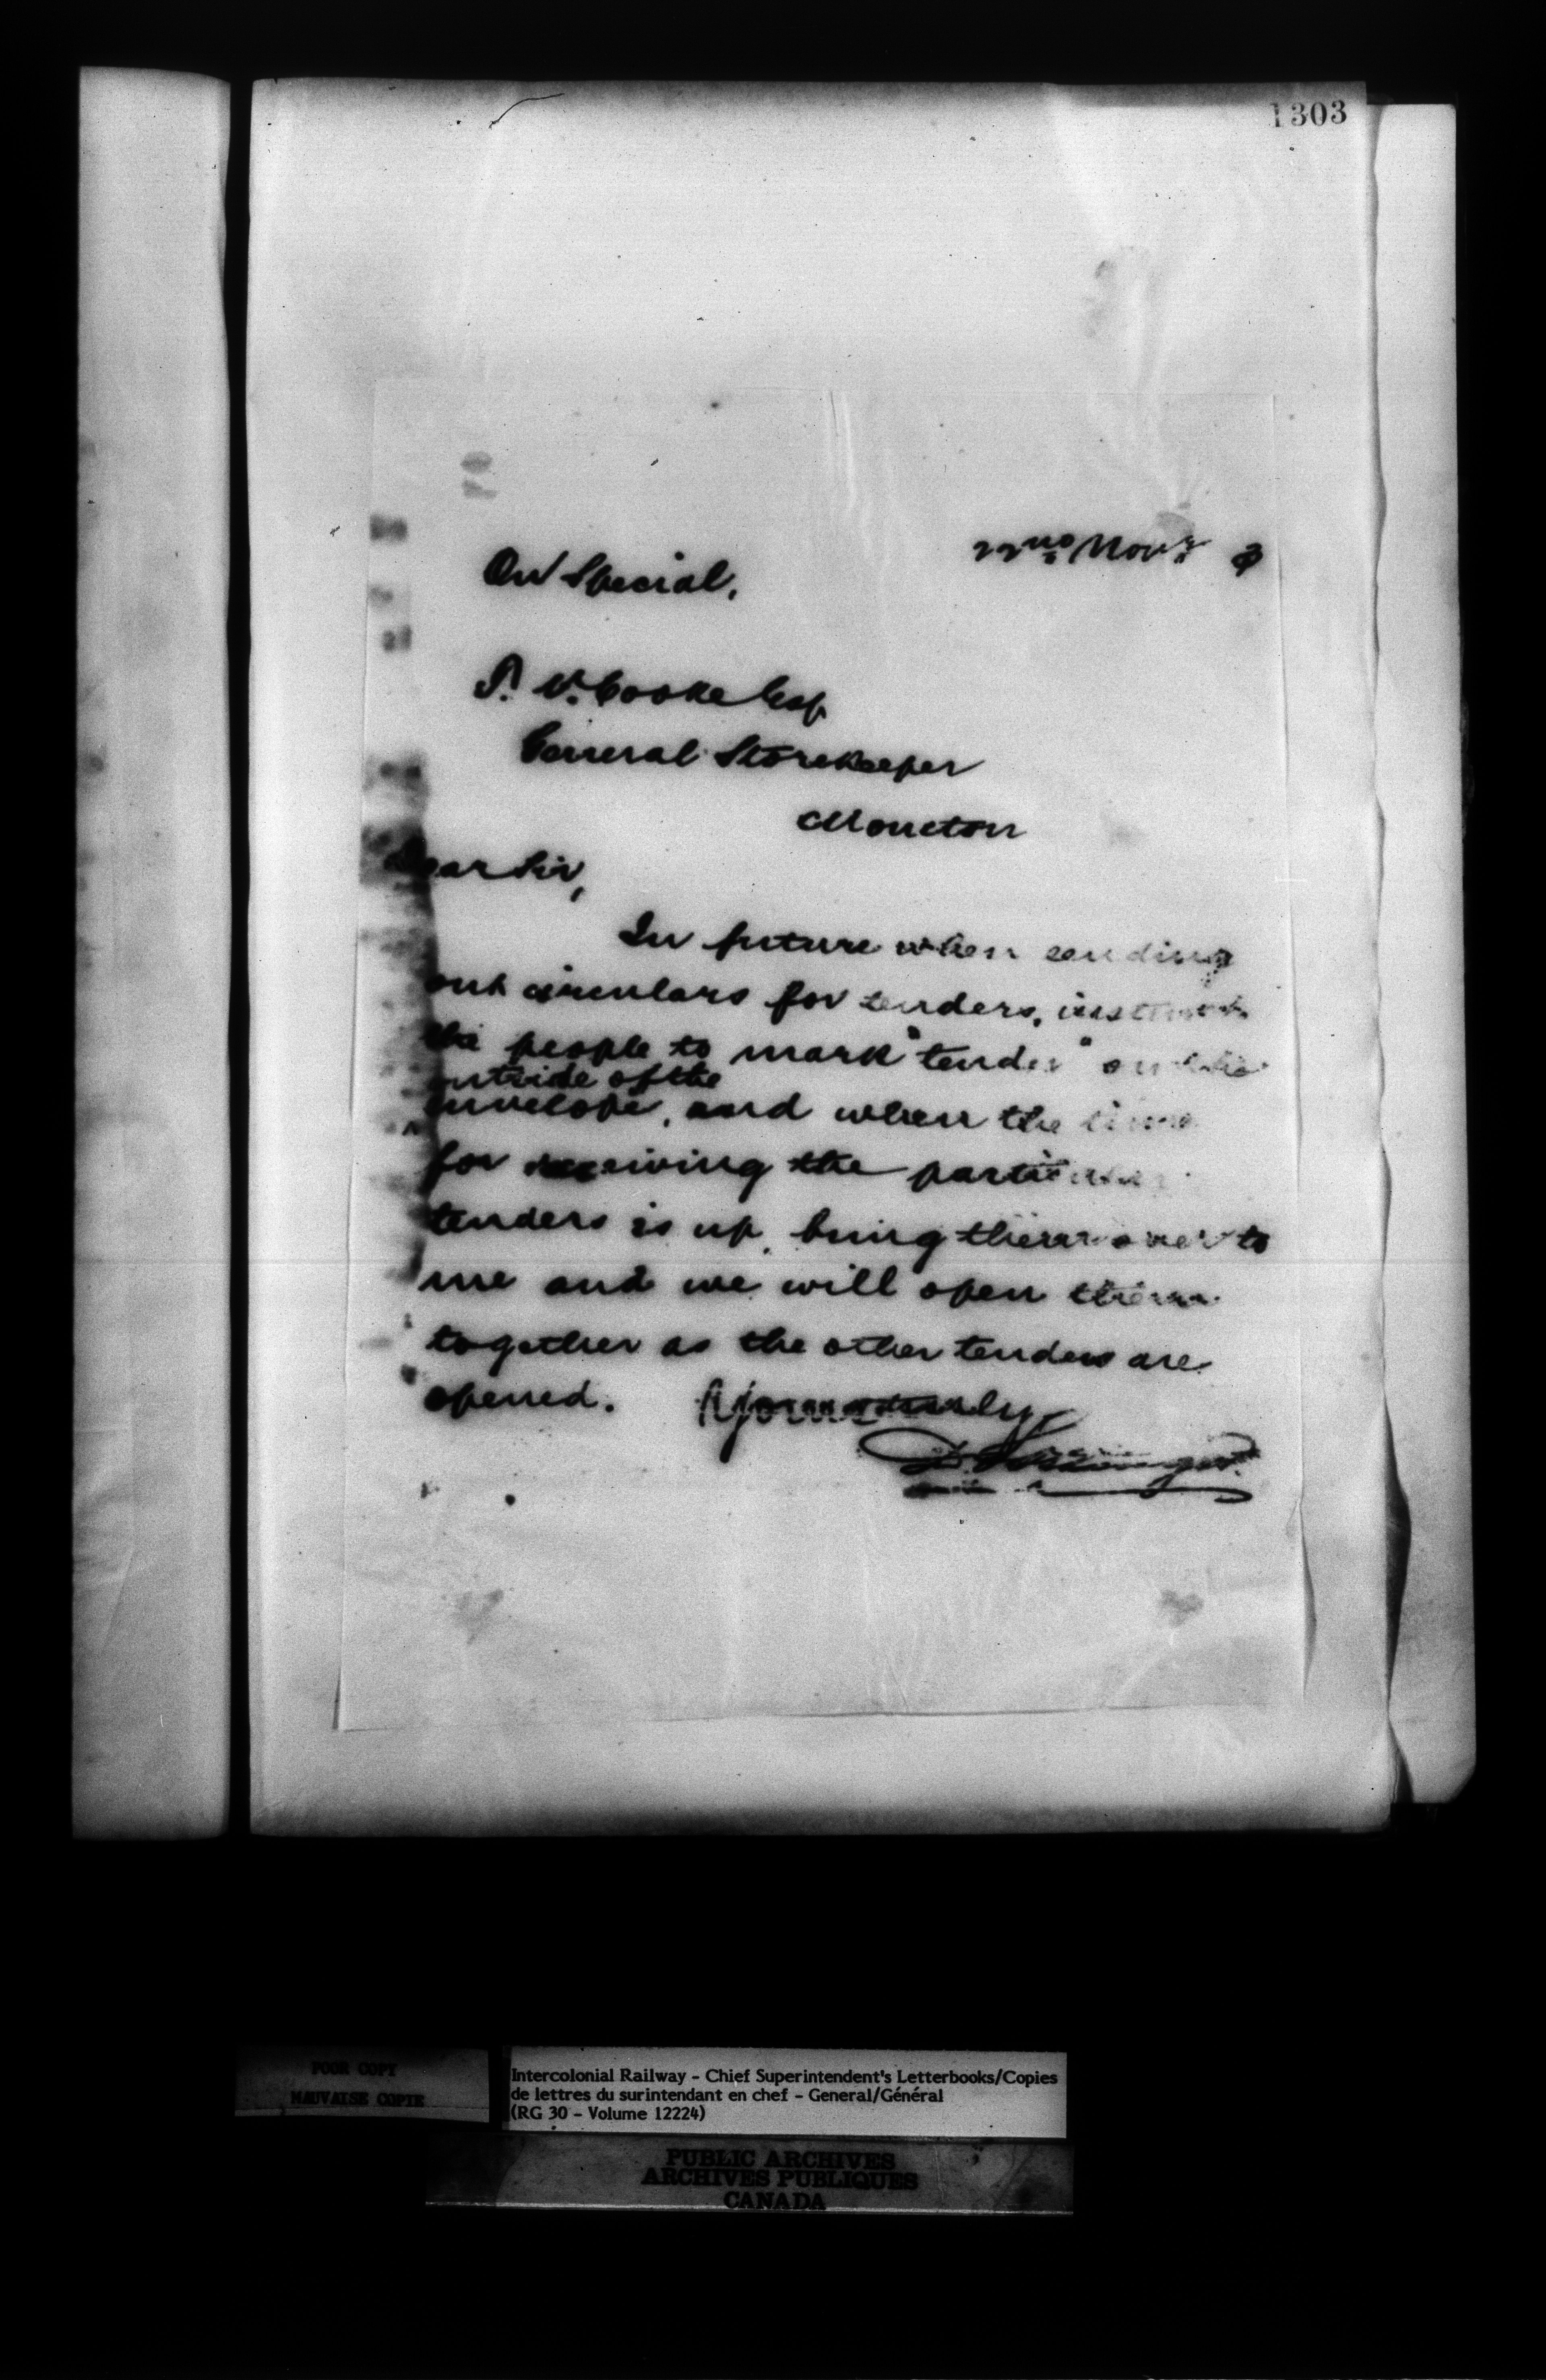 1303
22nd Novr
On Special.
P. V. Cooke Esq
General Storekeeper
Moncton
Dear Sir,
In future when sending
out circulars for tenders, instruct
the people to mark "tender" on the
outside of the
envelope, and when the time
for receiving the particular
tenders is up, bring them over to
me and we will open them
together as the other tenders are
opened. Yours truly
D. Pottinger
POOR COPY
MAUVAISE COPIE
Intercolonial Railway - Chief Superintendent's Letterbooks/Copies
de lettres du surintendant en chef - General/Général
(RG 30 - Volume 12224)
PUBLIC ARCHIVES
ARCHIVES PUBLIQUES
CANADA